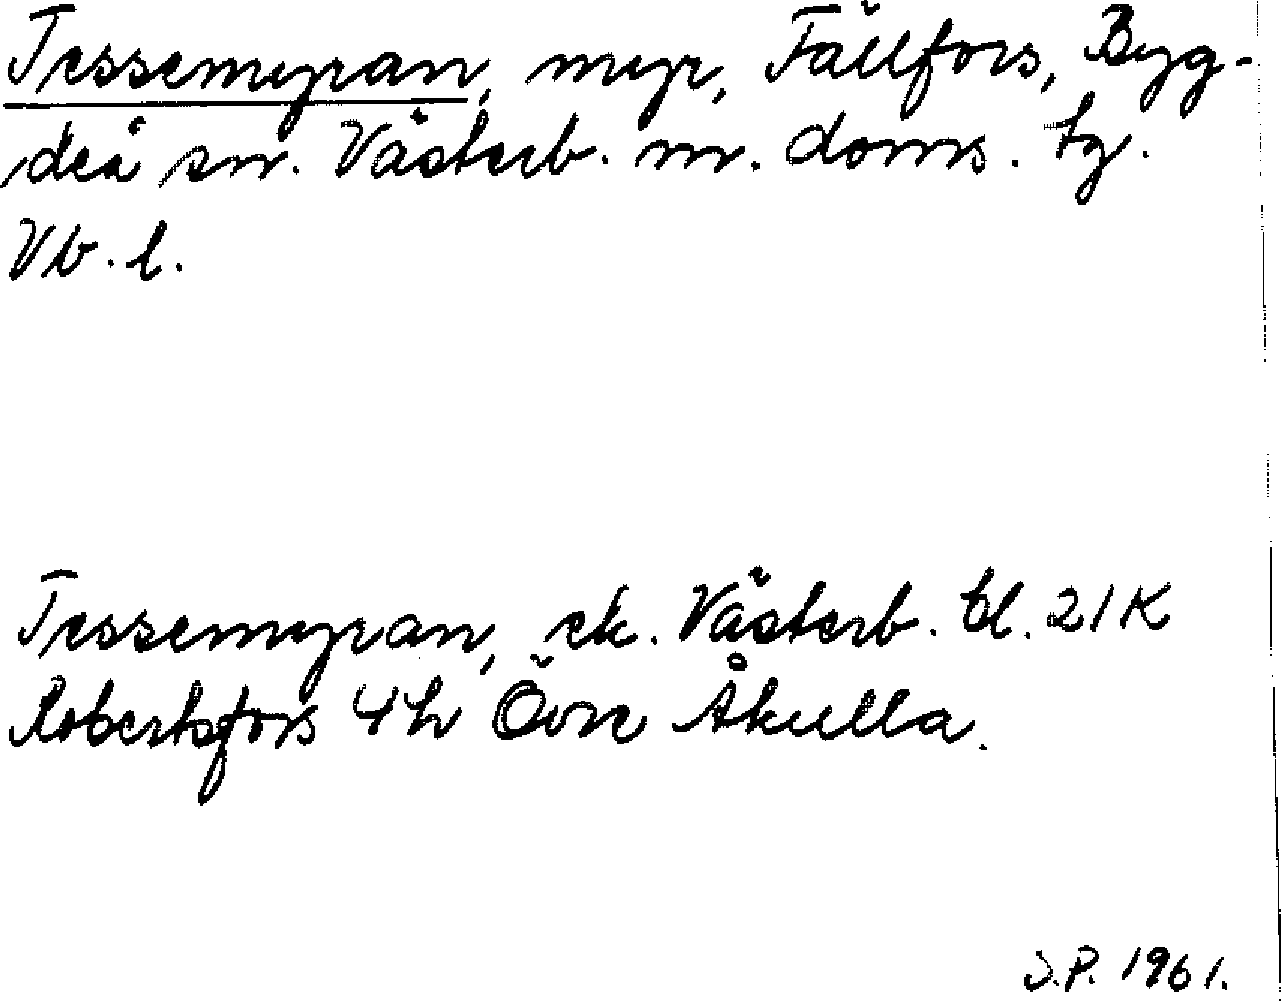 Tessemyran, myr, Fällfors, Byg-
deå sn. Västerb. n. doms. tg.
Vb. l.
Tessemyran, ek. Västerb. bl. 21K
Robertsfors 4h Övre Åkulla.
S.P. 1961.